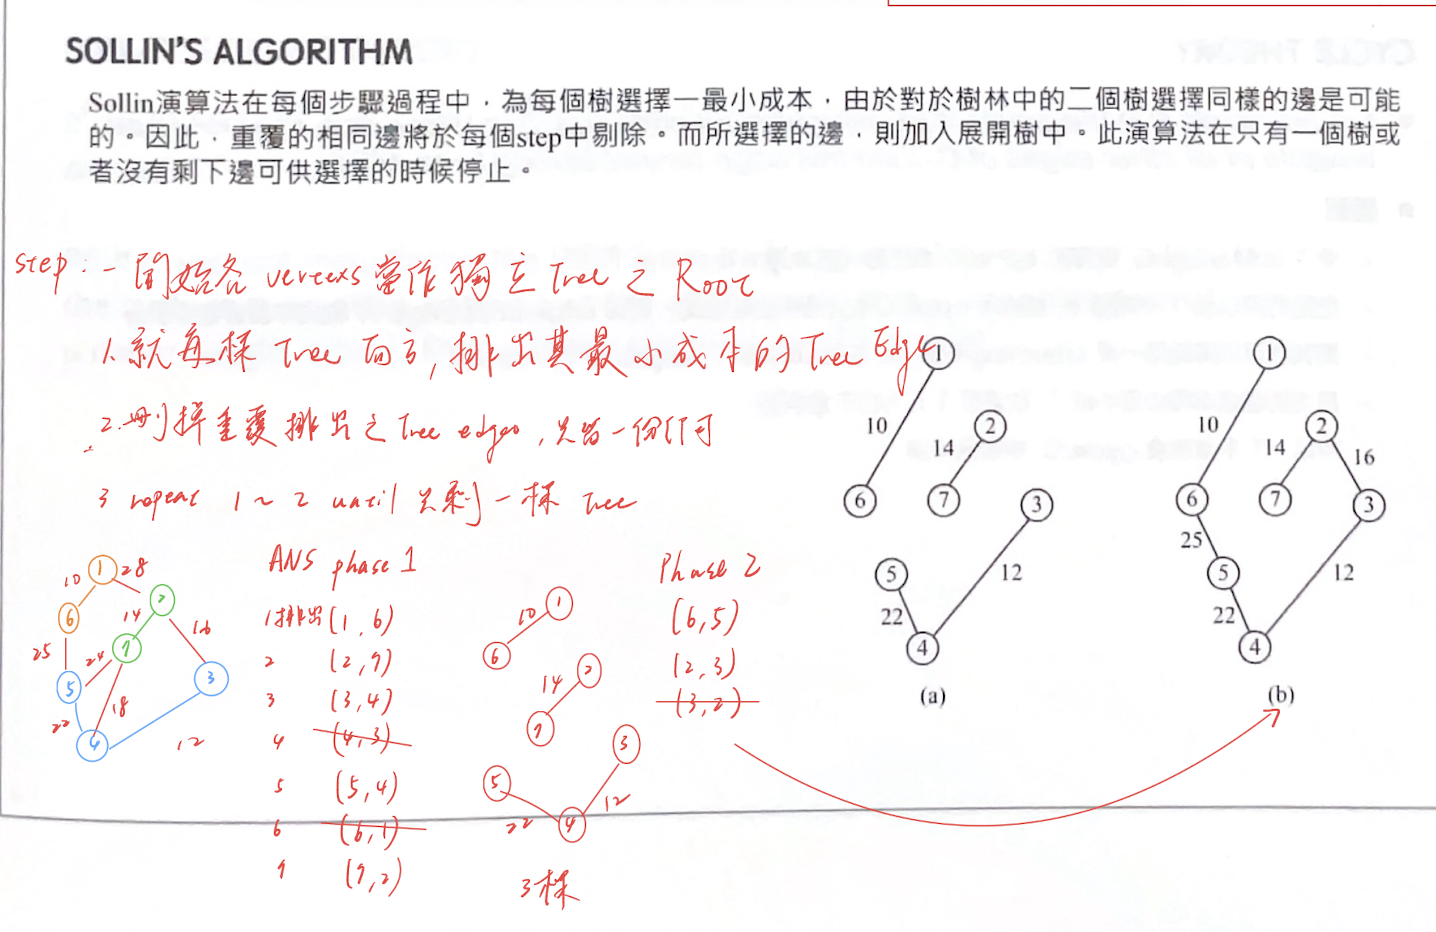 SOLLIN'S ALGORITHM
Sollin演算法在每個步驟過程中，為每個樹選擇一最小成本，由於對於樹林中的二個樹選擇同樣的邊是可能
的。因此，重覆的相同邊將於每個step中剔除。而所選擇的邊，則加入展開樹中。此演算法在只有一個樹或
者沒有剩下邊可供選擇的時候停止。
step: 一開始各 vertexs 當作獨立 Tree 之 Root
1. 就每棵 Tree 而言, 挑出其最小成本的 Tree Edge
2. 刪掉重覆挑出之 Tree edges, 只留一份即可
3 repeat 1 ~ 2 until 只剩一棵 Tree
1
10
6
2
14
7
3
5
12
22
4
(a)
1
10
2
14
16
6
7
3
25
5
12
22
4
(b)
1
10
28
2
6
14
16
7
25
24
5
3
18
22
4
12
ANS phase 1
1挑出 (1, 6)
2 (2, 7)
3 (3, 4)
4 (4, 3)
5 (5, 4)
6 (6, 1)
7 (7, 2)
1
10
6
2
14
7
3
5
12
22
4
3棵
Phase 2
(6, 5)
(2, 3)
(3, 2)